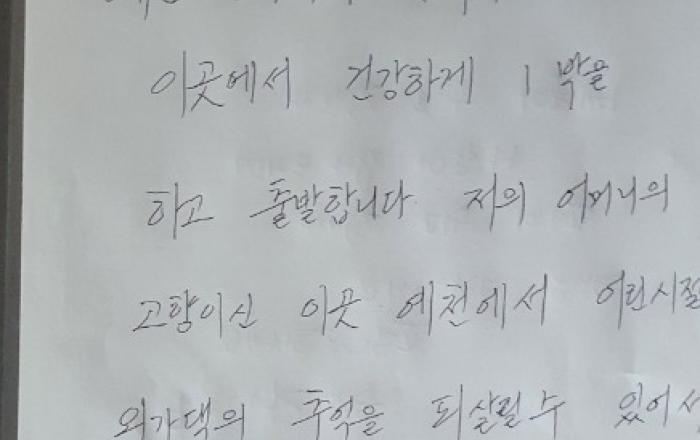 이곳에서 건강하게 1박을
하고 출발합니다 저의 어머니의
고향이신 이곳 예천에서 어린시절
외가댁의 추억을 되살릴수 있어서